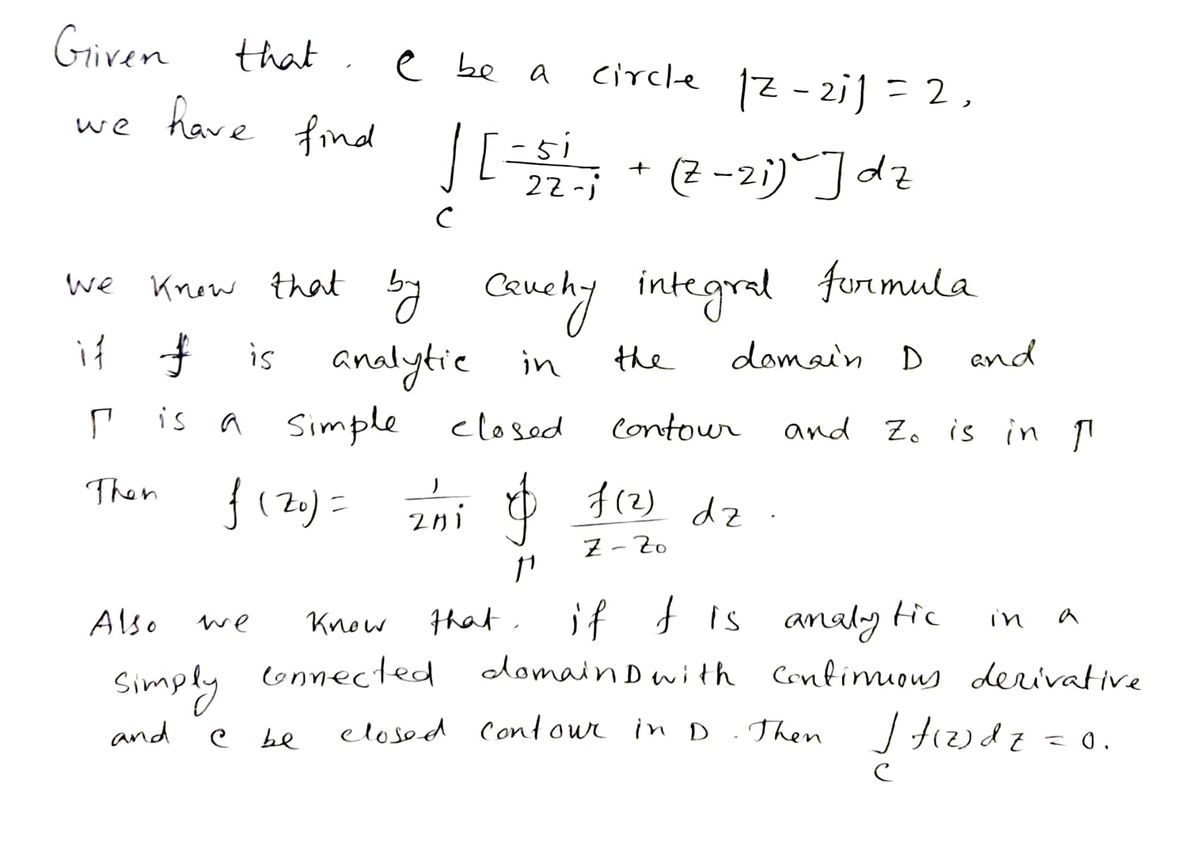 Given that. C be a circle |z - 2i| = 2,
we have find ∫_C [ -5i/(2z-i) + (z-2i)² ] dz
we know that by Cauchy integral formula
if f is analytic in the domain D and
Γ is a simple closed contour and z₀ is in Γ
Then f(z₀) = 1/(2πi) ∮_Γ f(z)/(z-z₀) dz.
Also we know that. if f is analytic in a
simply connected domain D with continuous derivative
and C be closed contour in D. Then ∫_C f(z)dz = 0.